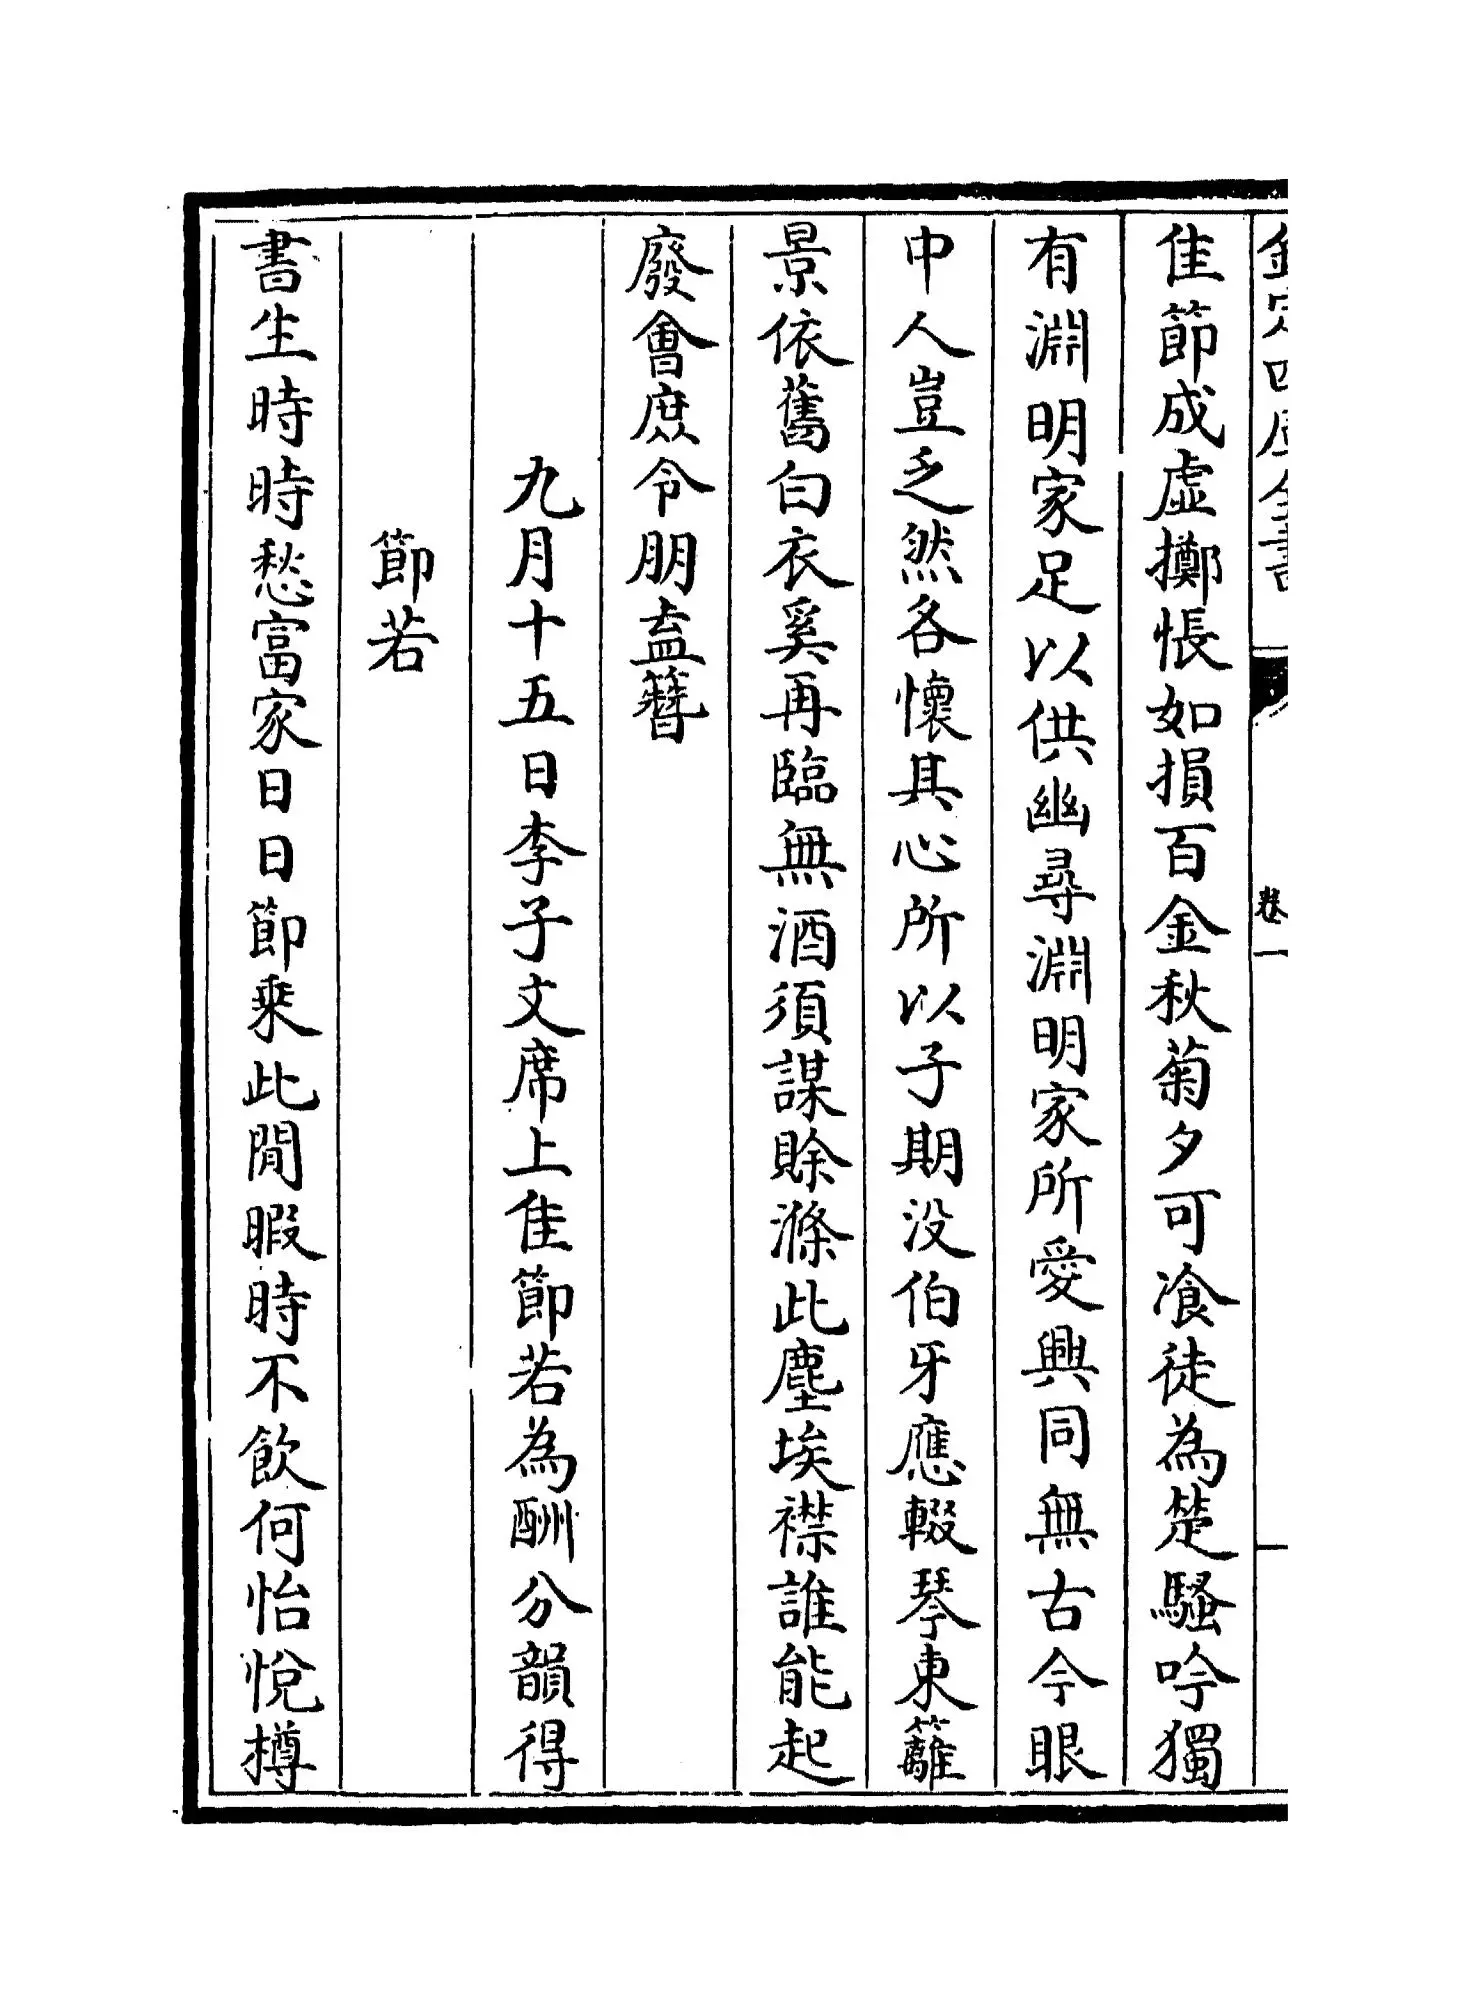 欽定四庫全書
卷一
佳節成虛擲悵如損百金秋菊夕可飡徒為楚騷吟獨
有淵明家足以供幽尋淵明家所愛興同無古今眼
中人豈乏然各懷其心所以子期没伯牙應輟琴東籬
景依舊白衣奚再臨無酒須謀賖滌此塵埃襟誰能起
廢㑹庶令朋盍簪
九月十五日李子文席上佳節若為酬分韻得
節若
書生時時愁富家日日節乗此閒暇時不飲何怡悅樽